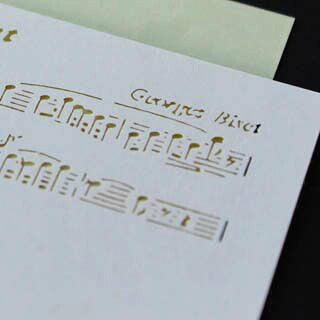 Georges Bizet